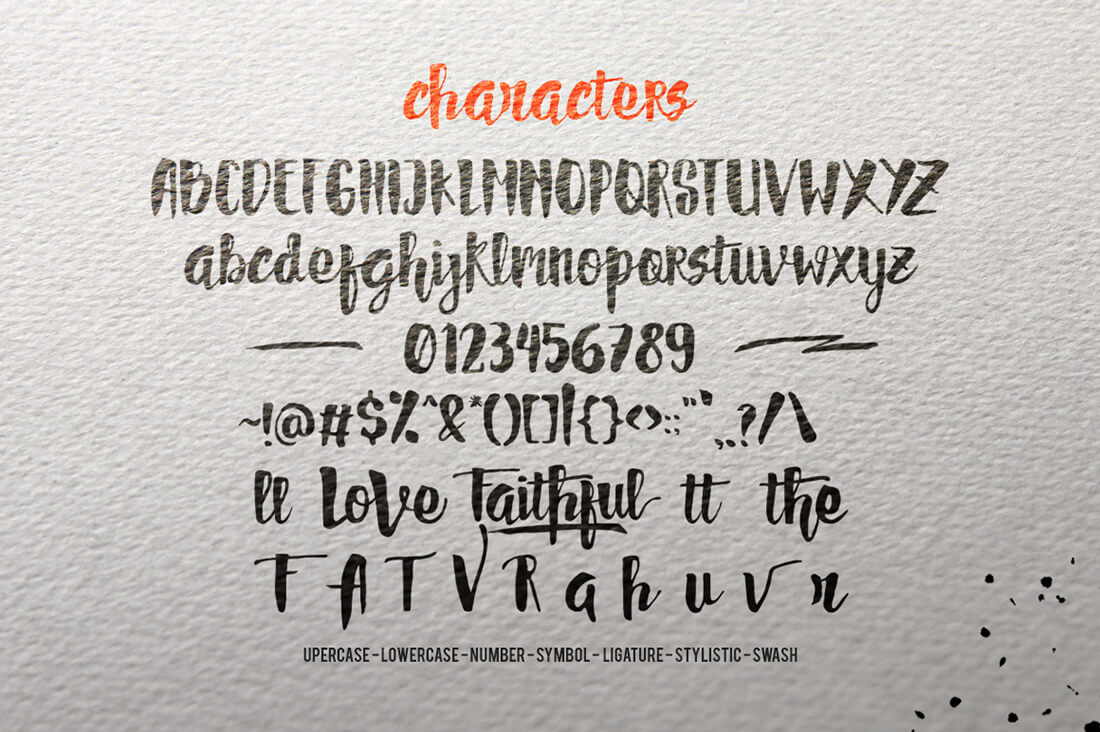 characters
ABCDEFGHIJKLMNOPQRSTUVWXYZ
abcdefghijklmnopqrstuvwxyz
0123456789
~!@#$%^&*()[]|{}<>:;"",,.?/\
ll love Faithful tt the
F A T V R a h u v r
UPERCASE - LOWERCASE - NUMBER - SYMBOL - LIGATURE - STYLISTIC - SWASH